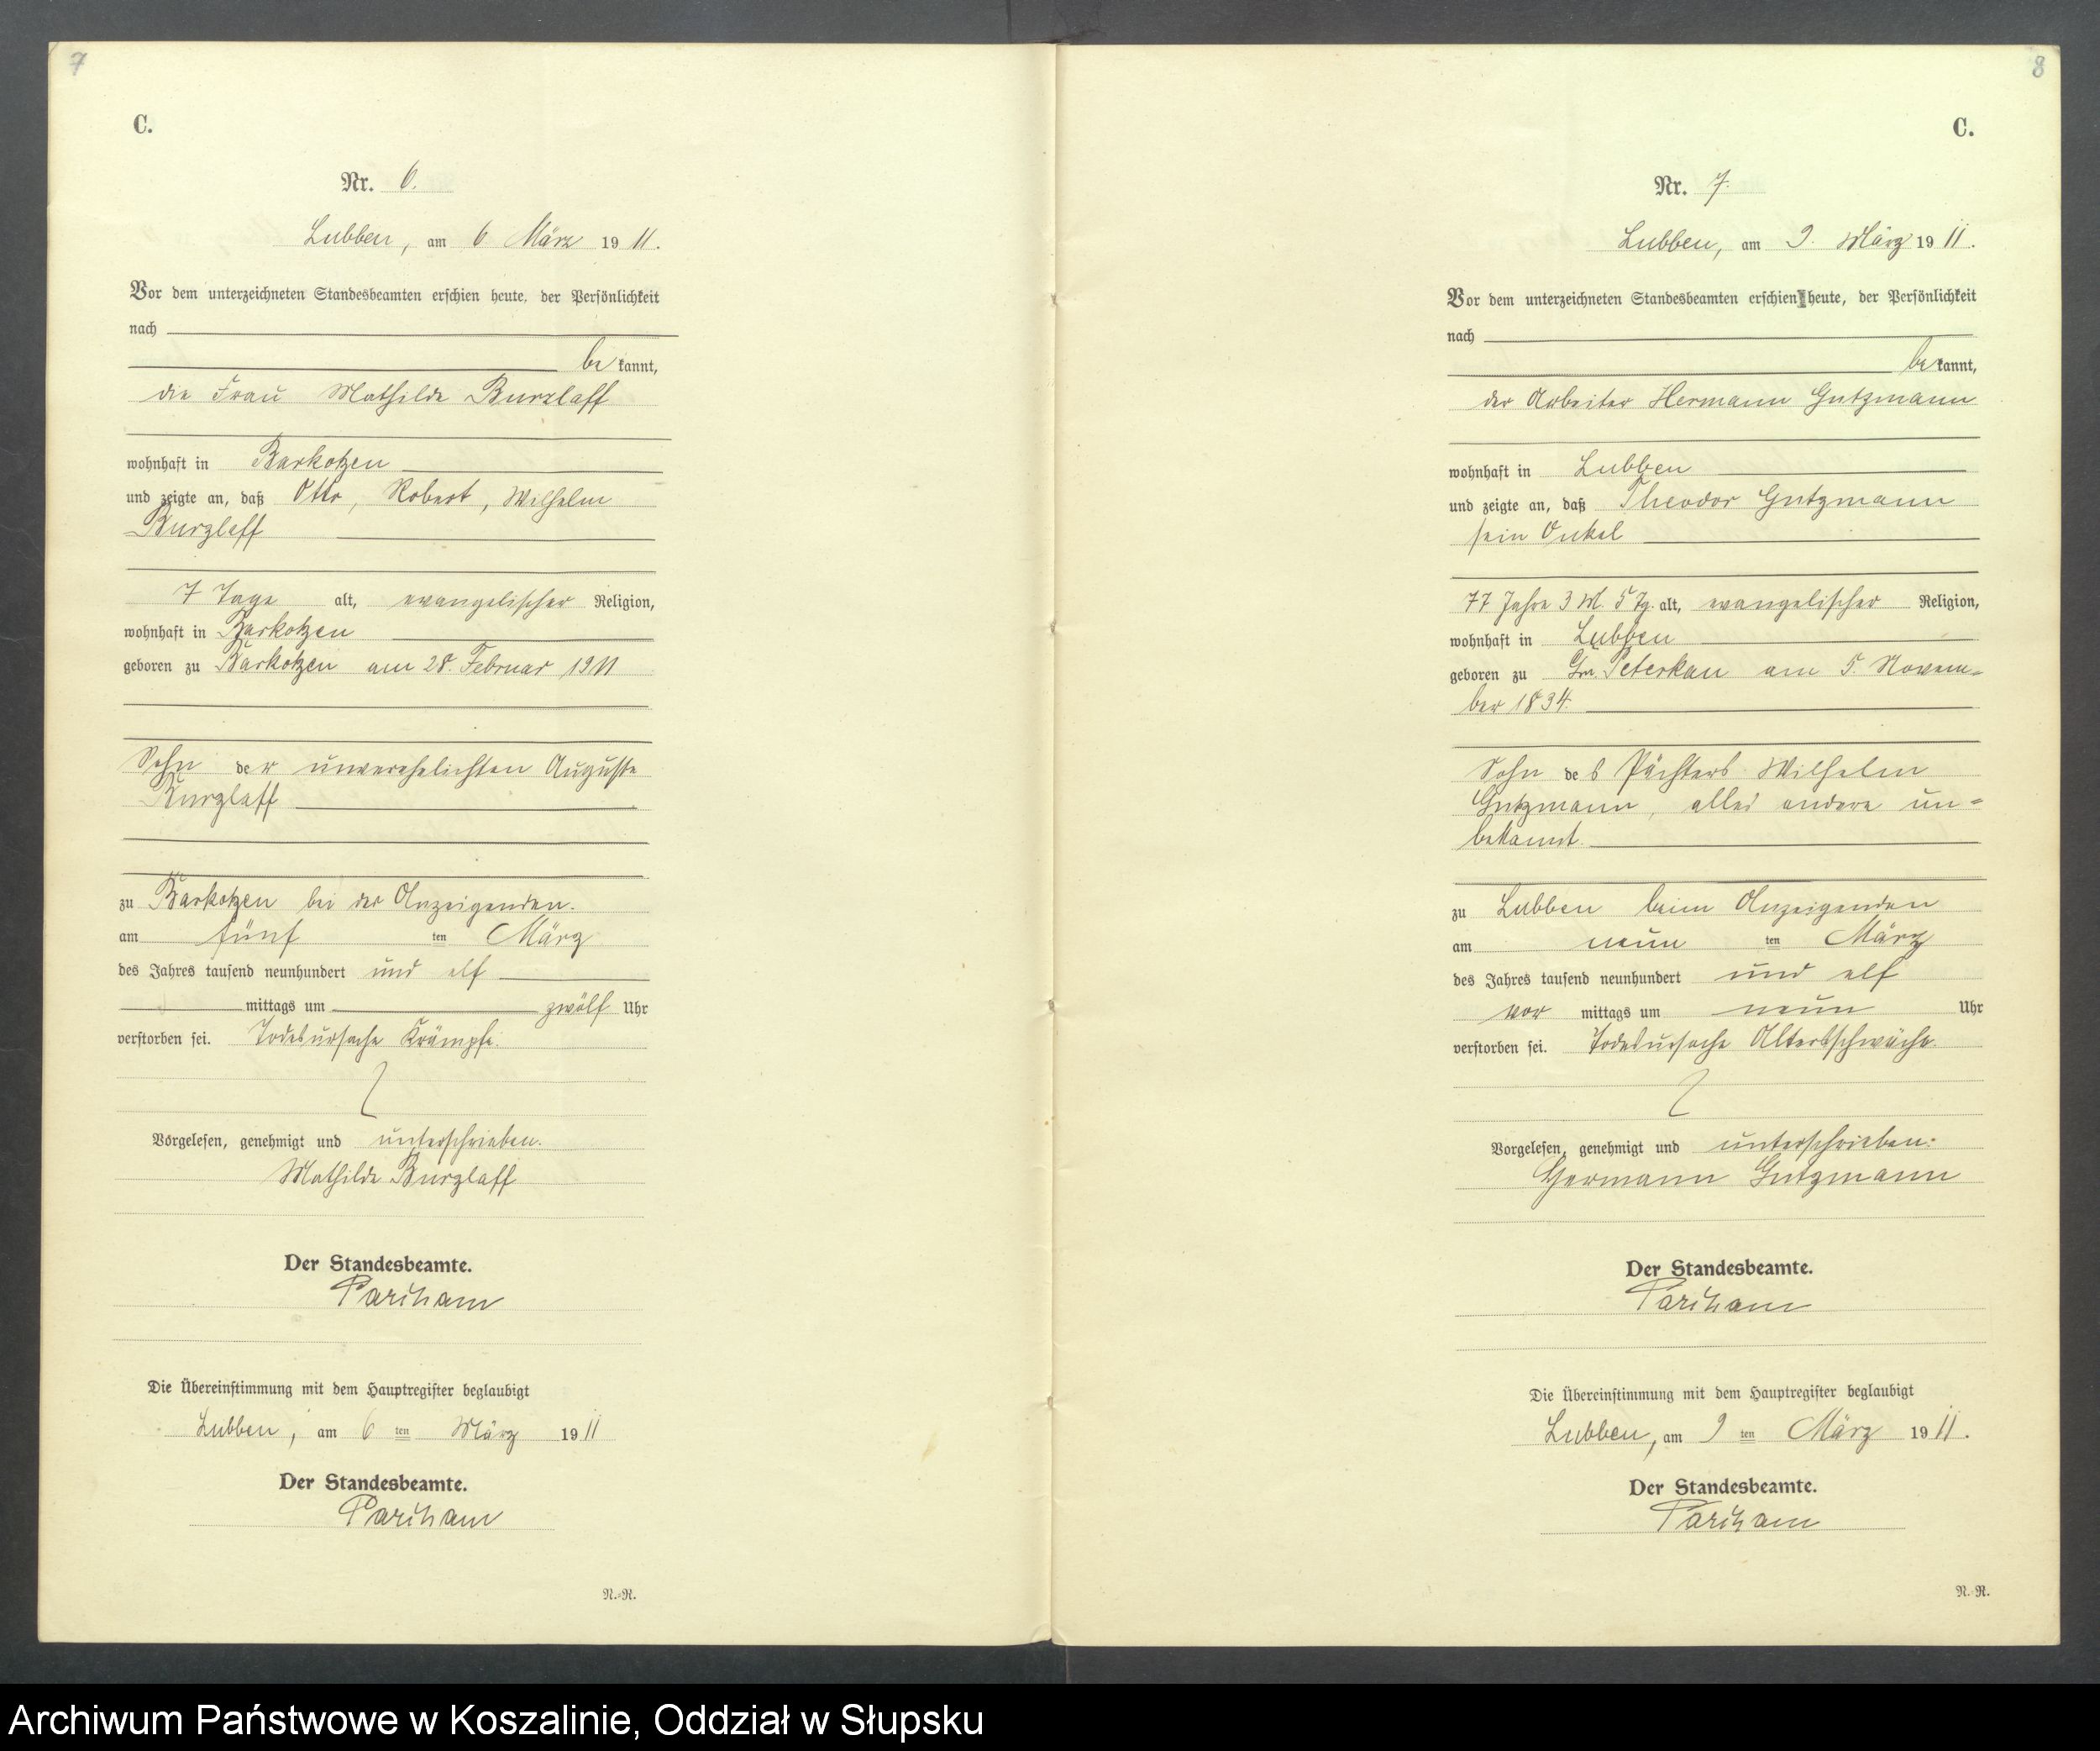 7
C.
Nr. 6.
Lubben, am 6 März 1911.
Vor dem unterzeichneten Standesbeamten erschien heute, der Persönlichkeit
nach
be kannt,
die Frau Mathilde Burzlaff
wohnhaft in Barkotzen
und zeigte an, daß Otto, Robert, Wilhelm
Burzlaff
7 Tage alt, evangelischer Religion,
wohnhaft in Barkotzen
geboren zu Barkotzen am 28. Februar 1911
Sohn der unverehelichten Auguste
Burzlaff
zu Barkotzen bei der Anzeigenden.
am fünf ten März
des Jahres tausend neunhundert und elf
mittags um zwölf Uhr
verstorben sei. Todesursache Krämpfe.
Vorgelesen, genehmigt und unterschrieben.
Mathilde Burzlaff
Der Standesbeamte.
Die Übereinstimmung mit dem Hauptregister beglaubigt
Lubben, am 6 ten März 1911
Der Standesbeamte.
N.-N.
8
C.
Nr. 7.
Lubben, am 9. März 1911.
Vor dem unterzeichneten Standesbeamten erschien heute, der Persönlichkeit
nach
be kannt,
der Arbeiter Hermann Gutzmann
wohnhaft in Lubben
und zeigte an, daß Theodor Gutzmann
sein Onkel
77 Jahre 3 M. 5 Tg. alt, evangelischer Religion,
wohnhaft in Lubben
geboren zu Gr. Peterkau am 5. Novem-
ber 1834.
Sohn des Pächters Wilhelm
Gutzmann, alles andere un-
bekannt.
zu Lubben beim Anzeigenden
am neun ten März
des Jahres tausend neunhundert und elf
vor mittags um neun Uhr
verstorben sei. Todesursache Altersschwäche.
Vorgelesen, genehmigt und unterschrieben:
Hermann Gutzmann
Der Standesbeamte.
Die Übereinstimmung mit dem Hauptregister beglaubigt
Lubben, am 9 ten März 1911.
Der Standesbeamte.
N.-N.
Archiwum Państwowe w Koszalinie, Oddział w Słupsku